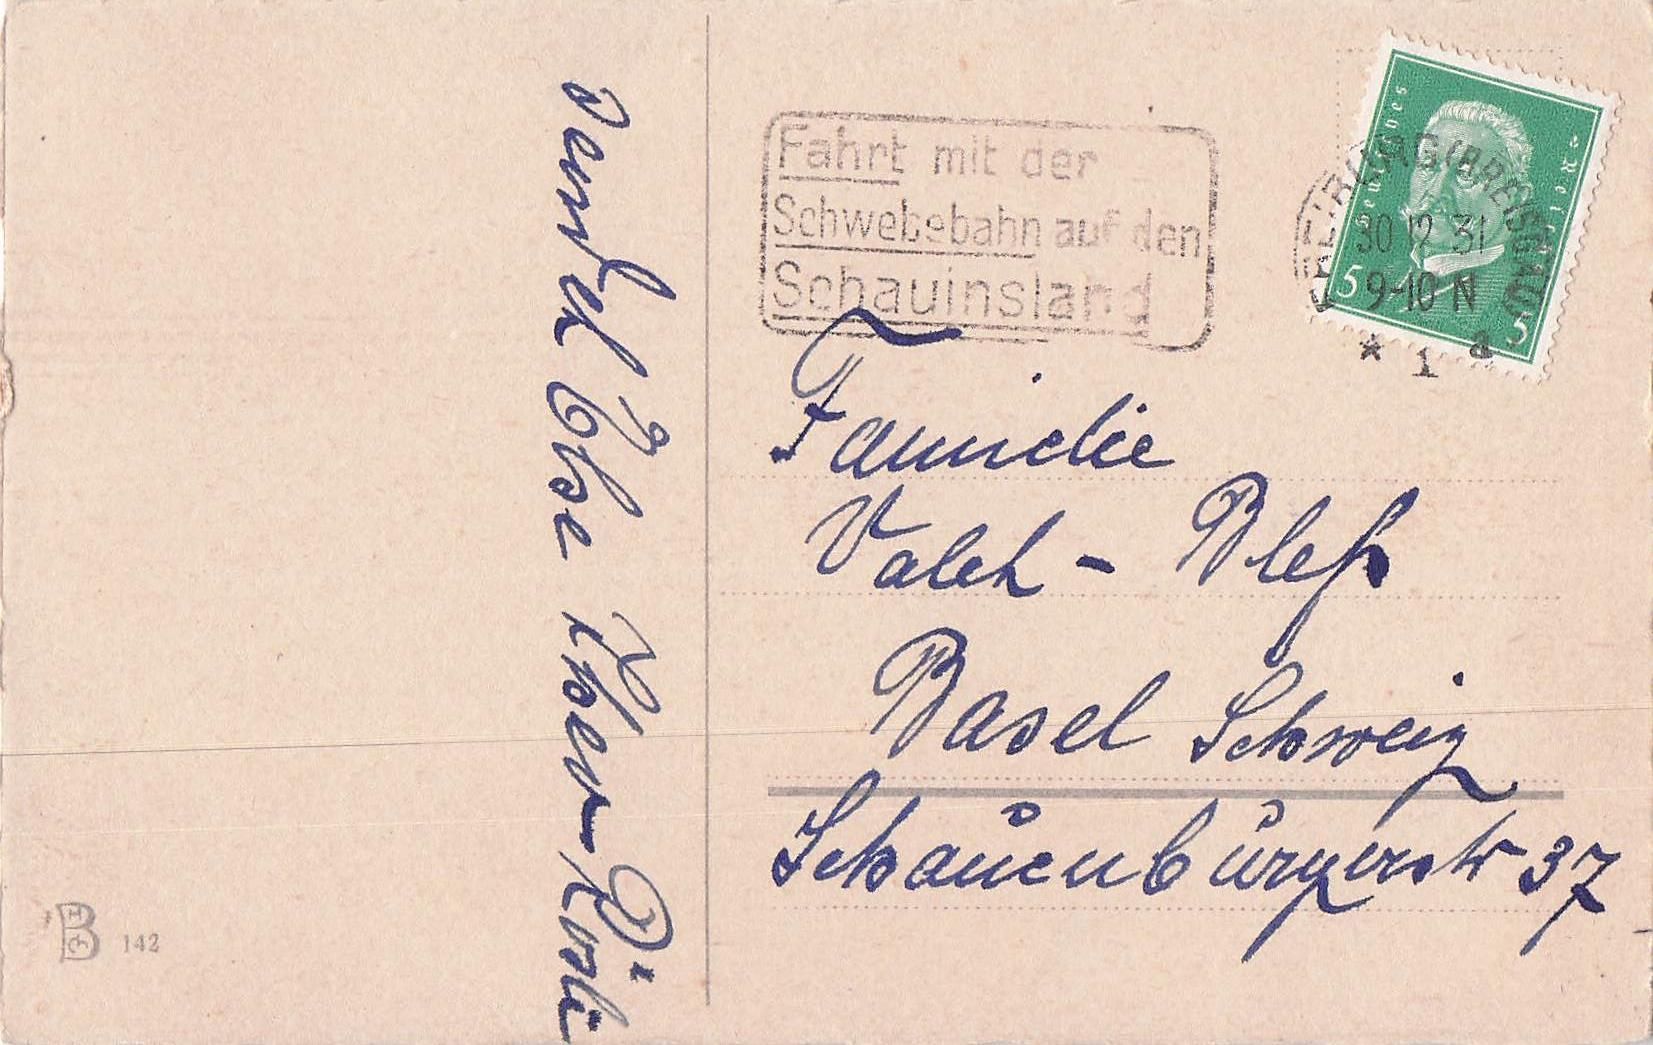 Fahrt mit der
Schwebebahn auf den
Schauinsland
Deutsches Reich
5 5
FREIBURG (BREISGAU)
30 12 31
9-10 N
* 1 a
Familie
Valet - Bleß
Basel Schweiz
Schauenburgerstr 37
142